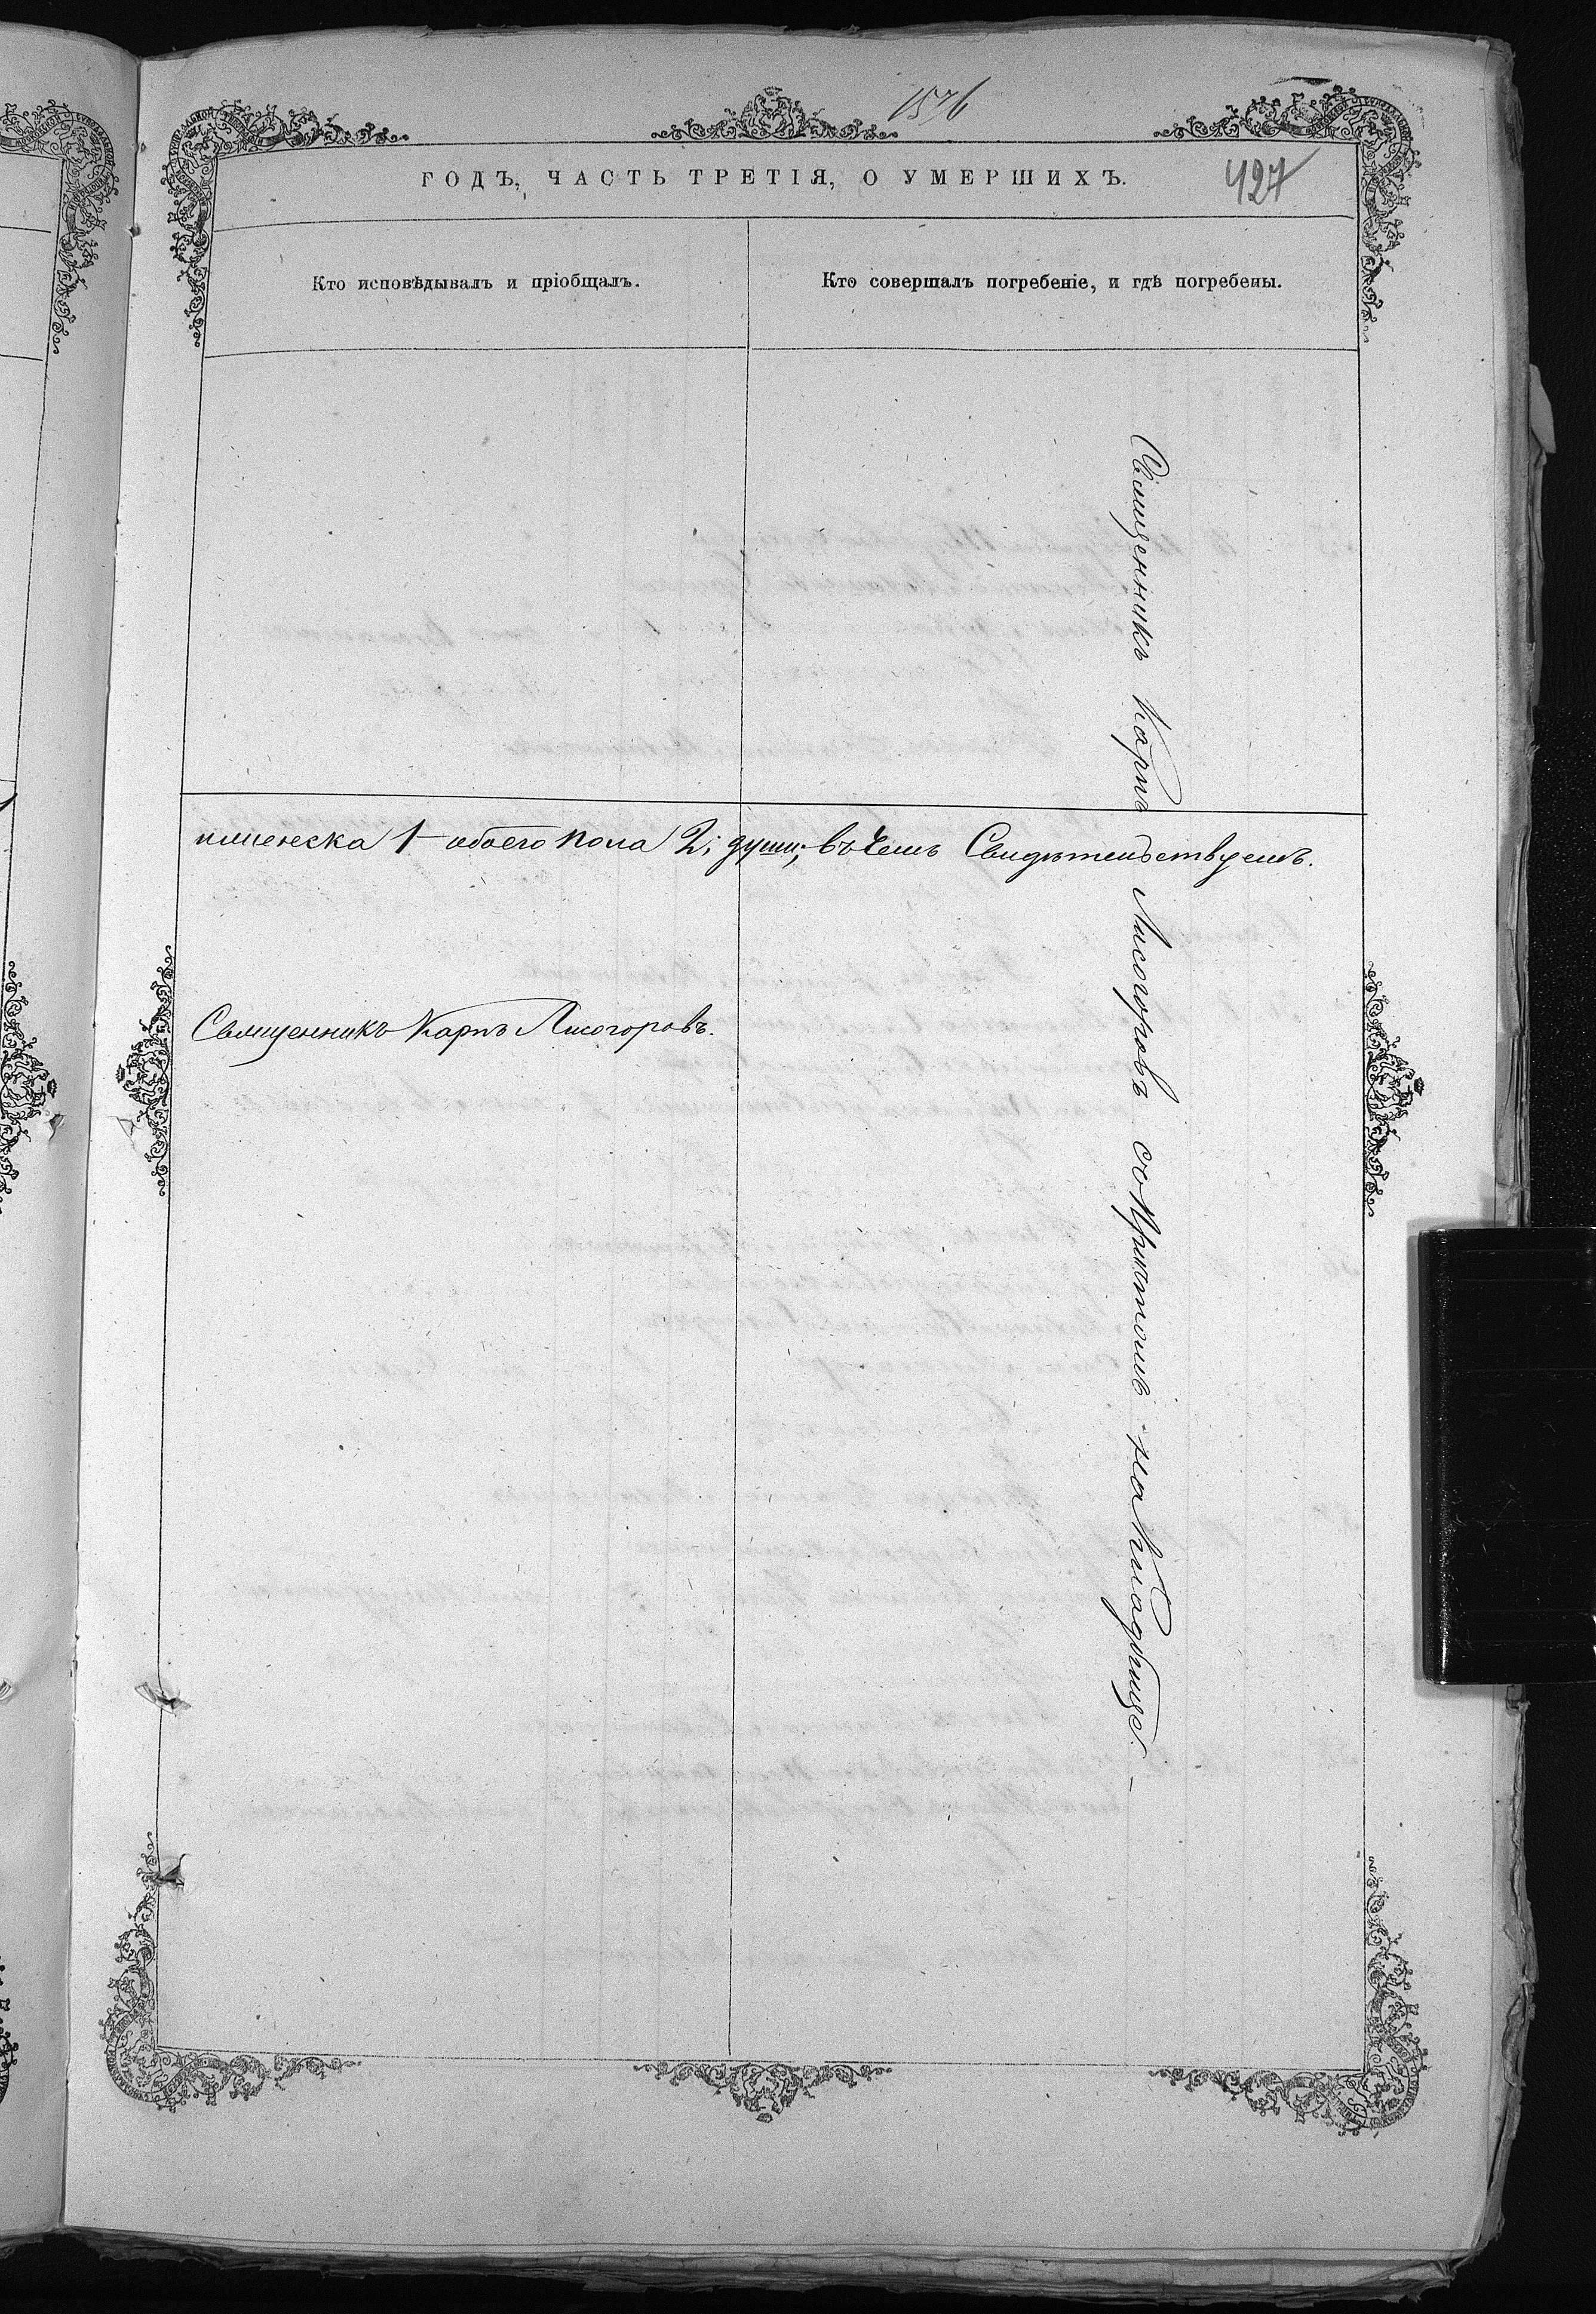 1576
ГОДЪ, ЧАСТЬ ТРЕТІЯ, О УМЕРШИХЪ.
427
Кто исповѣдывалъ и пріобщалъ.
Кто совершалъ погребеніе, и гдѣ погребены.
Священникъ Карпъ Лисогоровъ со Причтомъ на Кладбищѣ. —
женска 1 обоего пола 2; души; въ чемъ Свидѣтельствуемъ.
Священникъ Карпъ Лисогоровъ.